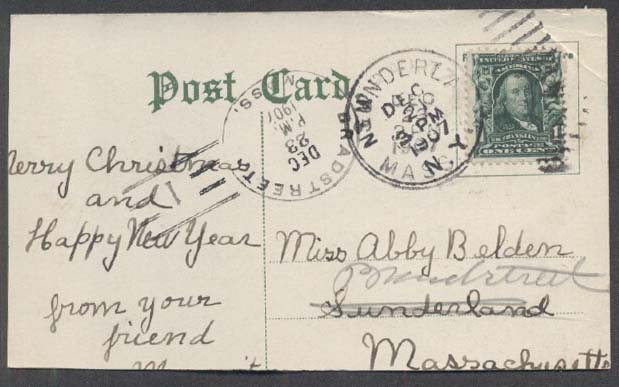 Post Card
BRADSTREET
MASS.
DEC
23
P.M.
1907
SUNDERLAND
DEC
MASS.
N.Y.
1907
UNITED STATES OF AMERICA
FRANKLIN
POSTAGE
ONE CENT
Merry Christmas
and
Happy New Year
from your
friend
Miss Abby Belden
Bradstreet
Sunderland
Massachusetts